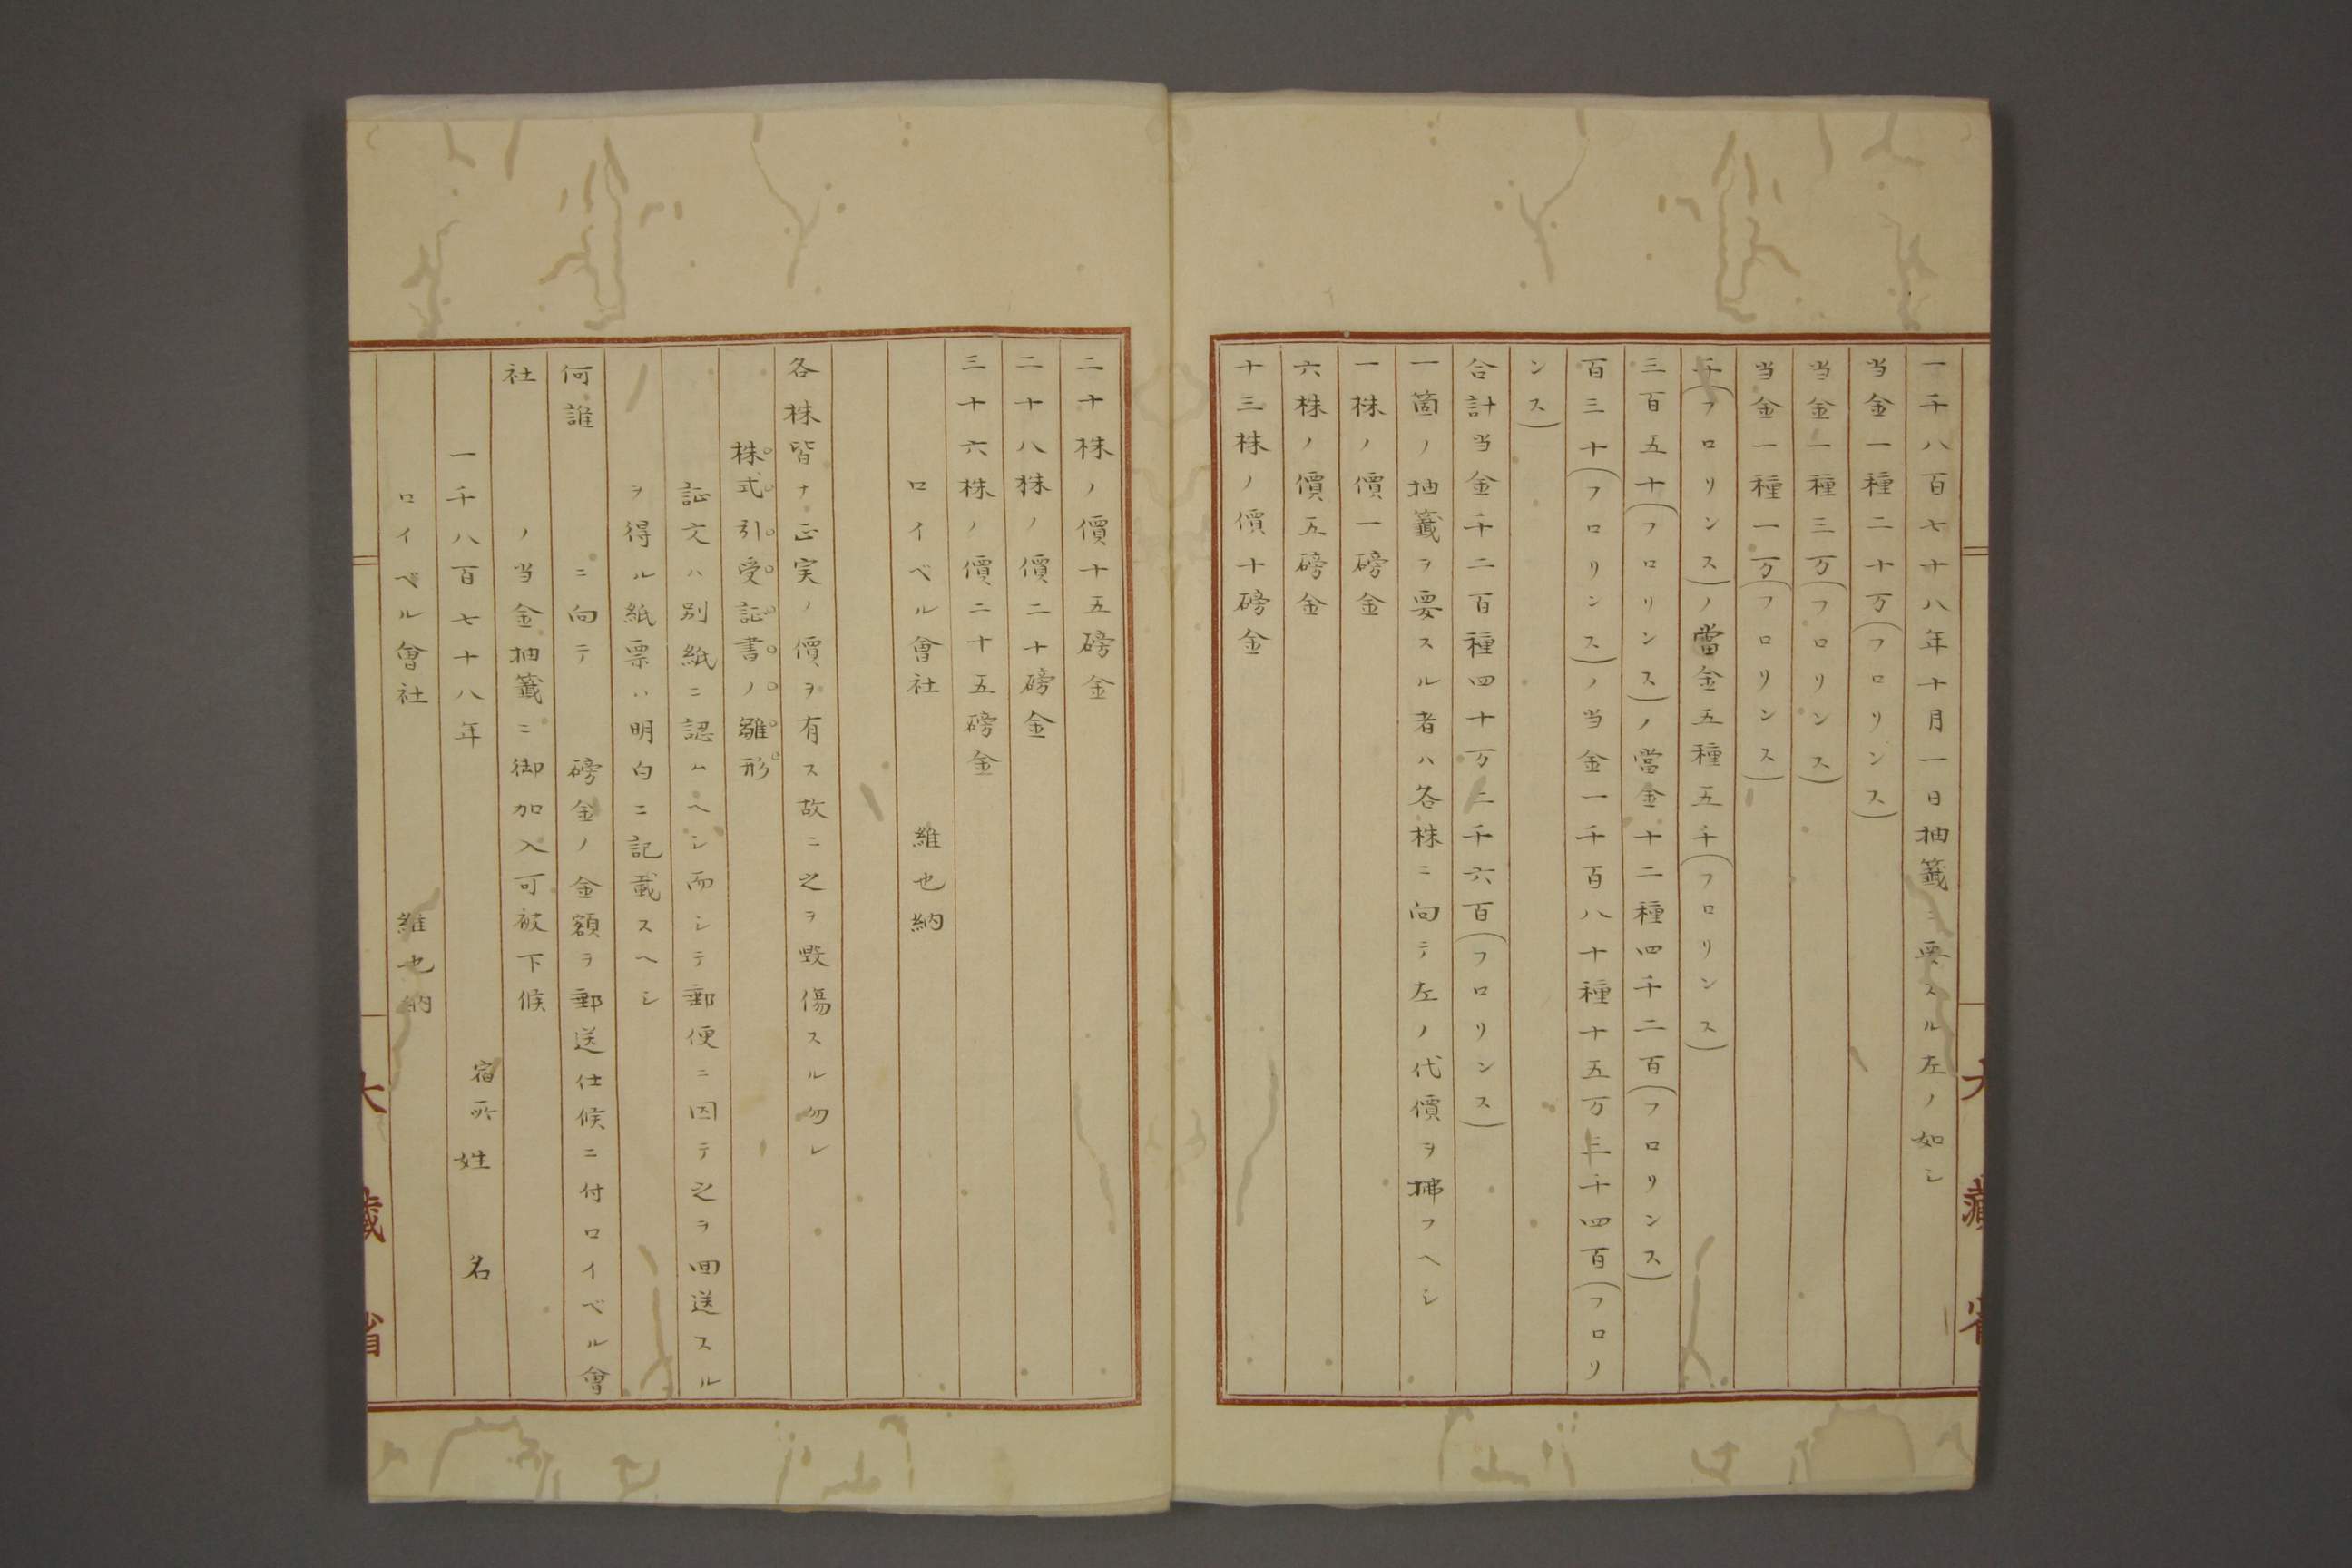 一千八百七十八年十月一日抽籤ニ要スル左ノ如シ
当金一種二十万(フロリンス)
当金一種三万(フロリンス)
当金一種一万(フロリンス)
千(フロリンス)ノ當金五種五千(フロリンス)
三百五十(フロリンス)ノ當金十二種四千二百(フロリンス)
百三十(フロリンス)ノ当金一千百八十種十五万三千四百(フロリ
ンス)
合計当金千二百種四十万二千六百(フロリンス)
一箇ノ抽籤ヲ要スル者ハ各株ニ向テ左ノ代價ヲ拂フヘシ
一株ノ價一磅金
六株ノ價五磅金
十三株ノ價十磅金
大藏省
二十株ノ價十五磅金
二十八株ノ價二十磅金
三十六株ノ價二十五磅金
ロイベル會社 維也納
各株皆ナ正実ノ價ヲ有ス故ニ之ヲ毀傷スル勿レ
株式引受証書ノ雛形
証文ハ別紙ニ認ムヘシ而シテ郵便ニ因テ之ヲ回送スル
ヲ得ル紙票ハ明白ニ記載スヘシ
何誰 ニ向テ 磅金ノ金額ヲ郵送仕候ニ付ロイベル會
社 ノ当金抽籤ニ御加入可被下候
一千八百七十八年 宿所 姓 名
ロイベル會社 維也納
大藏省